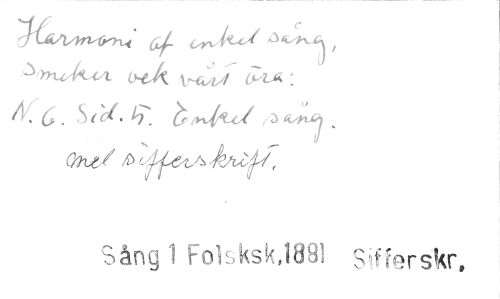 Harmoni af enkel sång,
smeker vek vårt öra:
N. 6. Sid. 5. Enkel sång.
mel sifferskrift.
Sång 1 Folsksk,1881 Sifferskr,